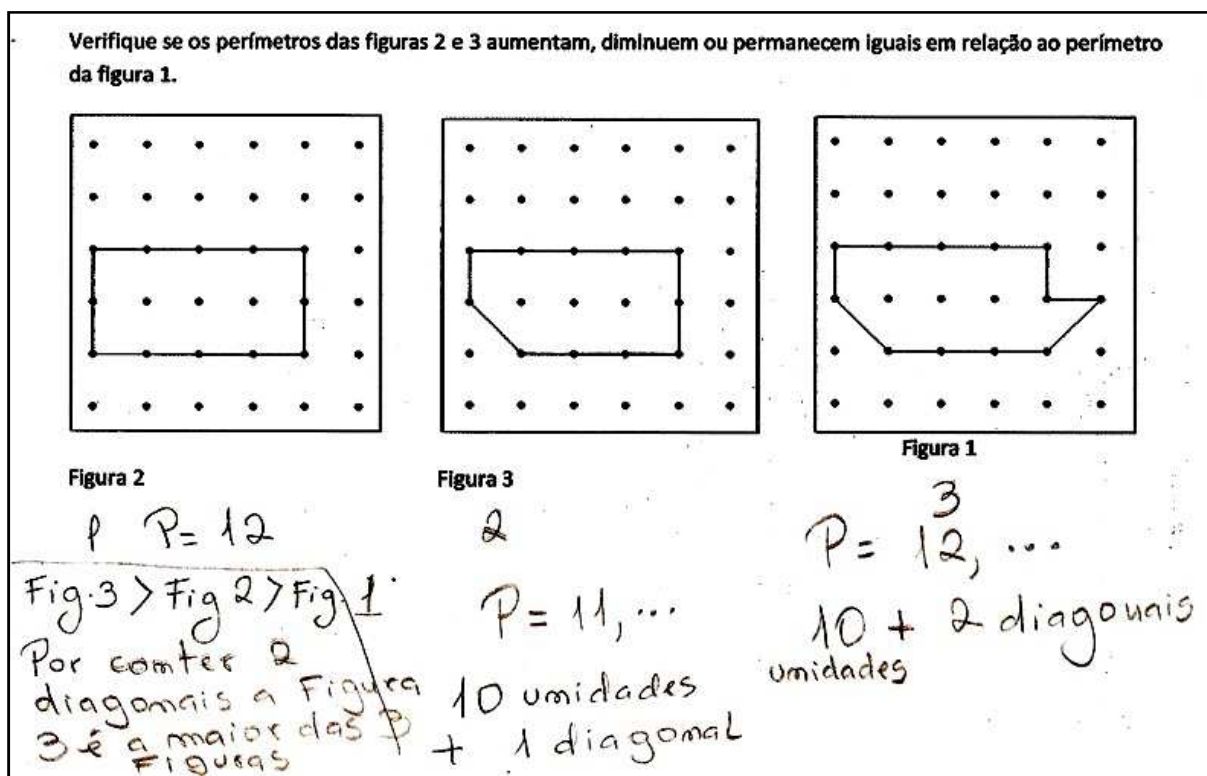 Verifique se os perímetros das figuras 2 e 3 aumentam, diminuem ou permanecem iguais em relação ao perímetro
da figura 1.
Figura 2
Figura 3
Figura 1
P = 12
2
3
P = 12, ...
Fig. 3 > Fig 2 > Fig. 1
Por comter 2
diagomais a Figura
3 é a maior das 3
FIGURAS
P = 11, ...
10 umidades
+ 1 diagomal
10 + 2 diagonais
umidades